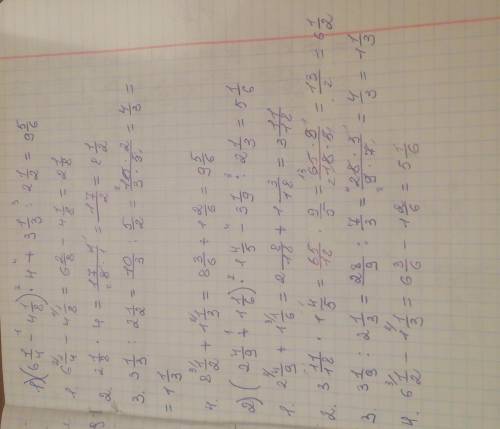 1) (6 1/4 - 4 1/8) · 4 + 3 1/3 : 2 1/2 = 9 5/6
1. 6 1/4 - 4 1/8 = 6 2/8 - 4 1/8 = 2 1/8
2. 2 1/8 · 4 = 17 · 4/8 = 17/2 = 8 1/2
3. 3 1/3 : 2 1/2 = 10/3 : 5/2 = 10 · 2/3 · 5 = 4/3 =
= 1 1/3
4. 8 1/2 + 1 1/3 = 8 3/6 + 1 2/6 = 9 5/6
2) (2 4/9 + 1 1/6) · 1 4/5 - 3 1/9 : 2 1/3 = 5 1/6
1. 2 4/9 + 1 1/6 = 2 8/18 + 1 3/18 = 3 11/18
2. 3 11/18 · 1 4/5 = 65/18 · 9/5 = 65 · 9/18 · 5 = 13/2 = 6 1/2
3 3 1/9 : 2 1/3 = 28/9 : 7/3 = 28 · 3/9 · 7 = 4/3 = 1 1/3
4. 6 1/2 - 1 1/3 = 6 3/6 - 1 2/6 = 5 1/6